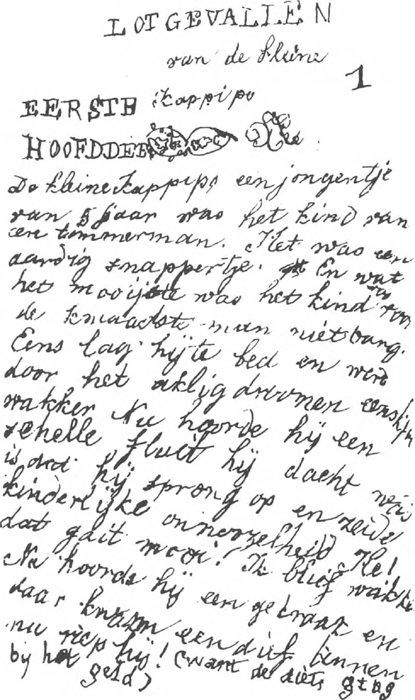 LOTGEVALLEN
van de kleine
1
EERSTE Kappipo
HOOFDDEEL
De kleine Kappipo een jongentje
van 5 jaar was het kind van
een timmerman. Het was een
aardig snappertje. En wat
het mooijste was het kind was voor
de kwaadste man niet bang.
Eens lag hij te bed en werd
door het aklig droomen eensklaps
wakker Nu hoorde hij een
schelle fluit hij dacht wat
is dat hij sprong op en zeide
kinderlijke onnoozelheid He!
dat gait mooi! Ik blief wakker
Nu hoorde hij een gekraak en
daar kwam een dief binnen
nu riep hij! (want de diets ging
by het geld)